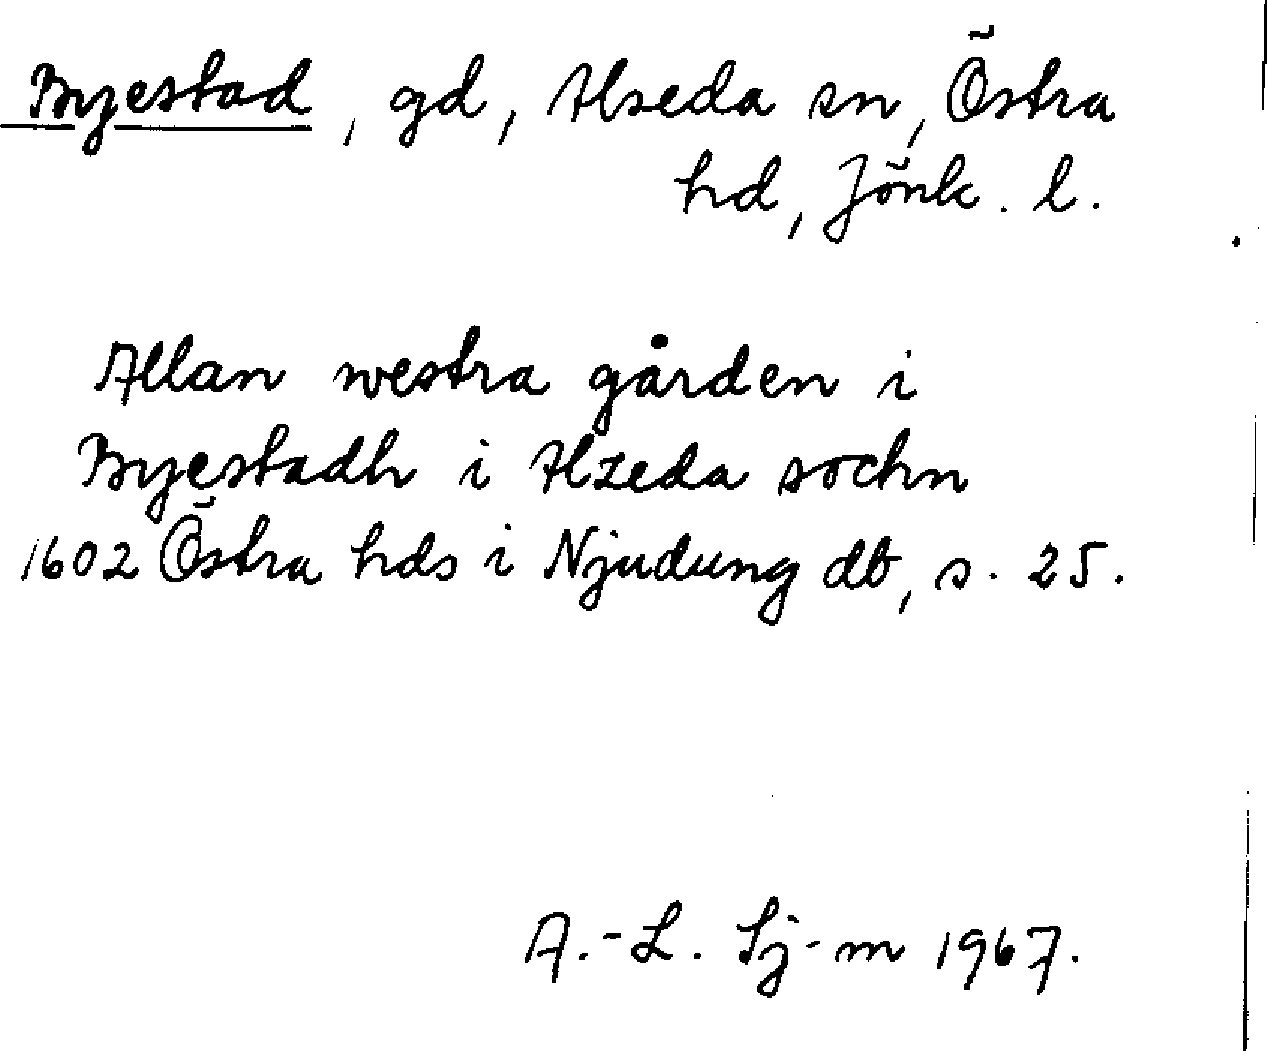 Byestad, gd, Alseda sn, Östra
hd, Jönk. l.
Allan westra gården i
Byestadh i Alzeda sochn
1602 Östra hds i Njudung db, s. 25.
A.-L. Sj-m 1967.